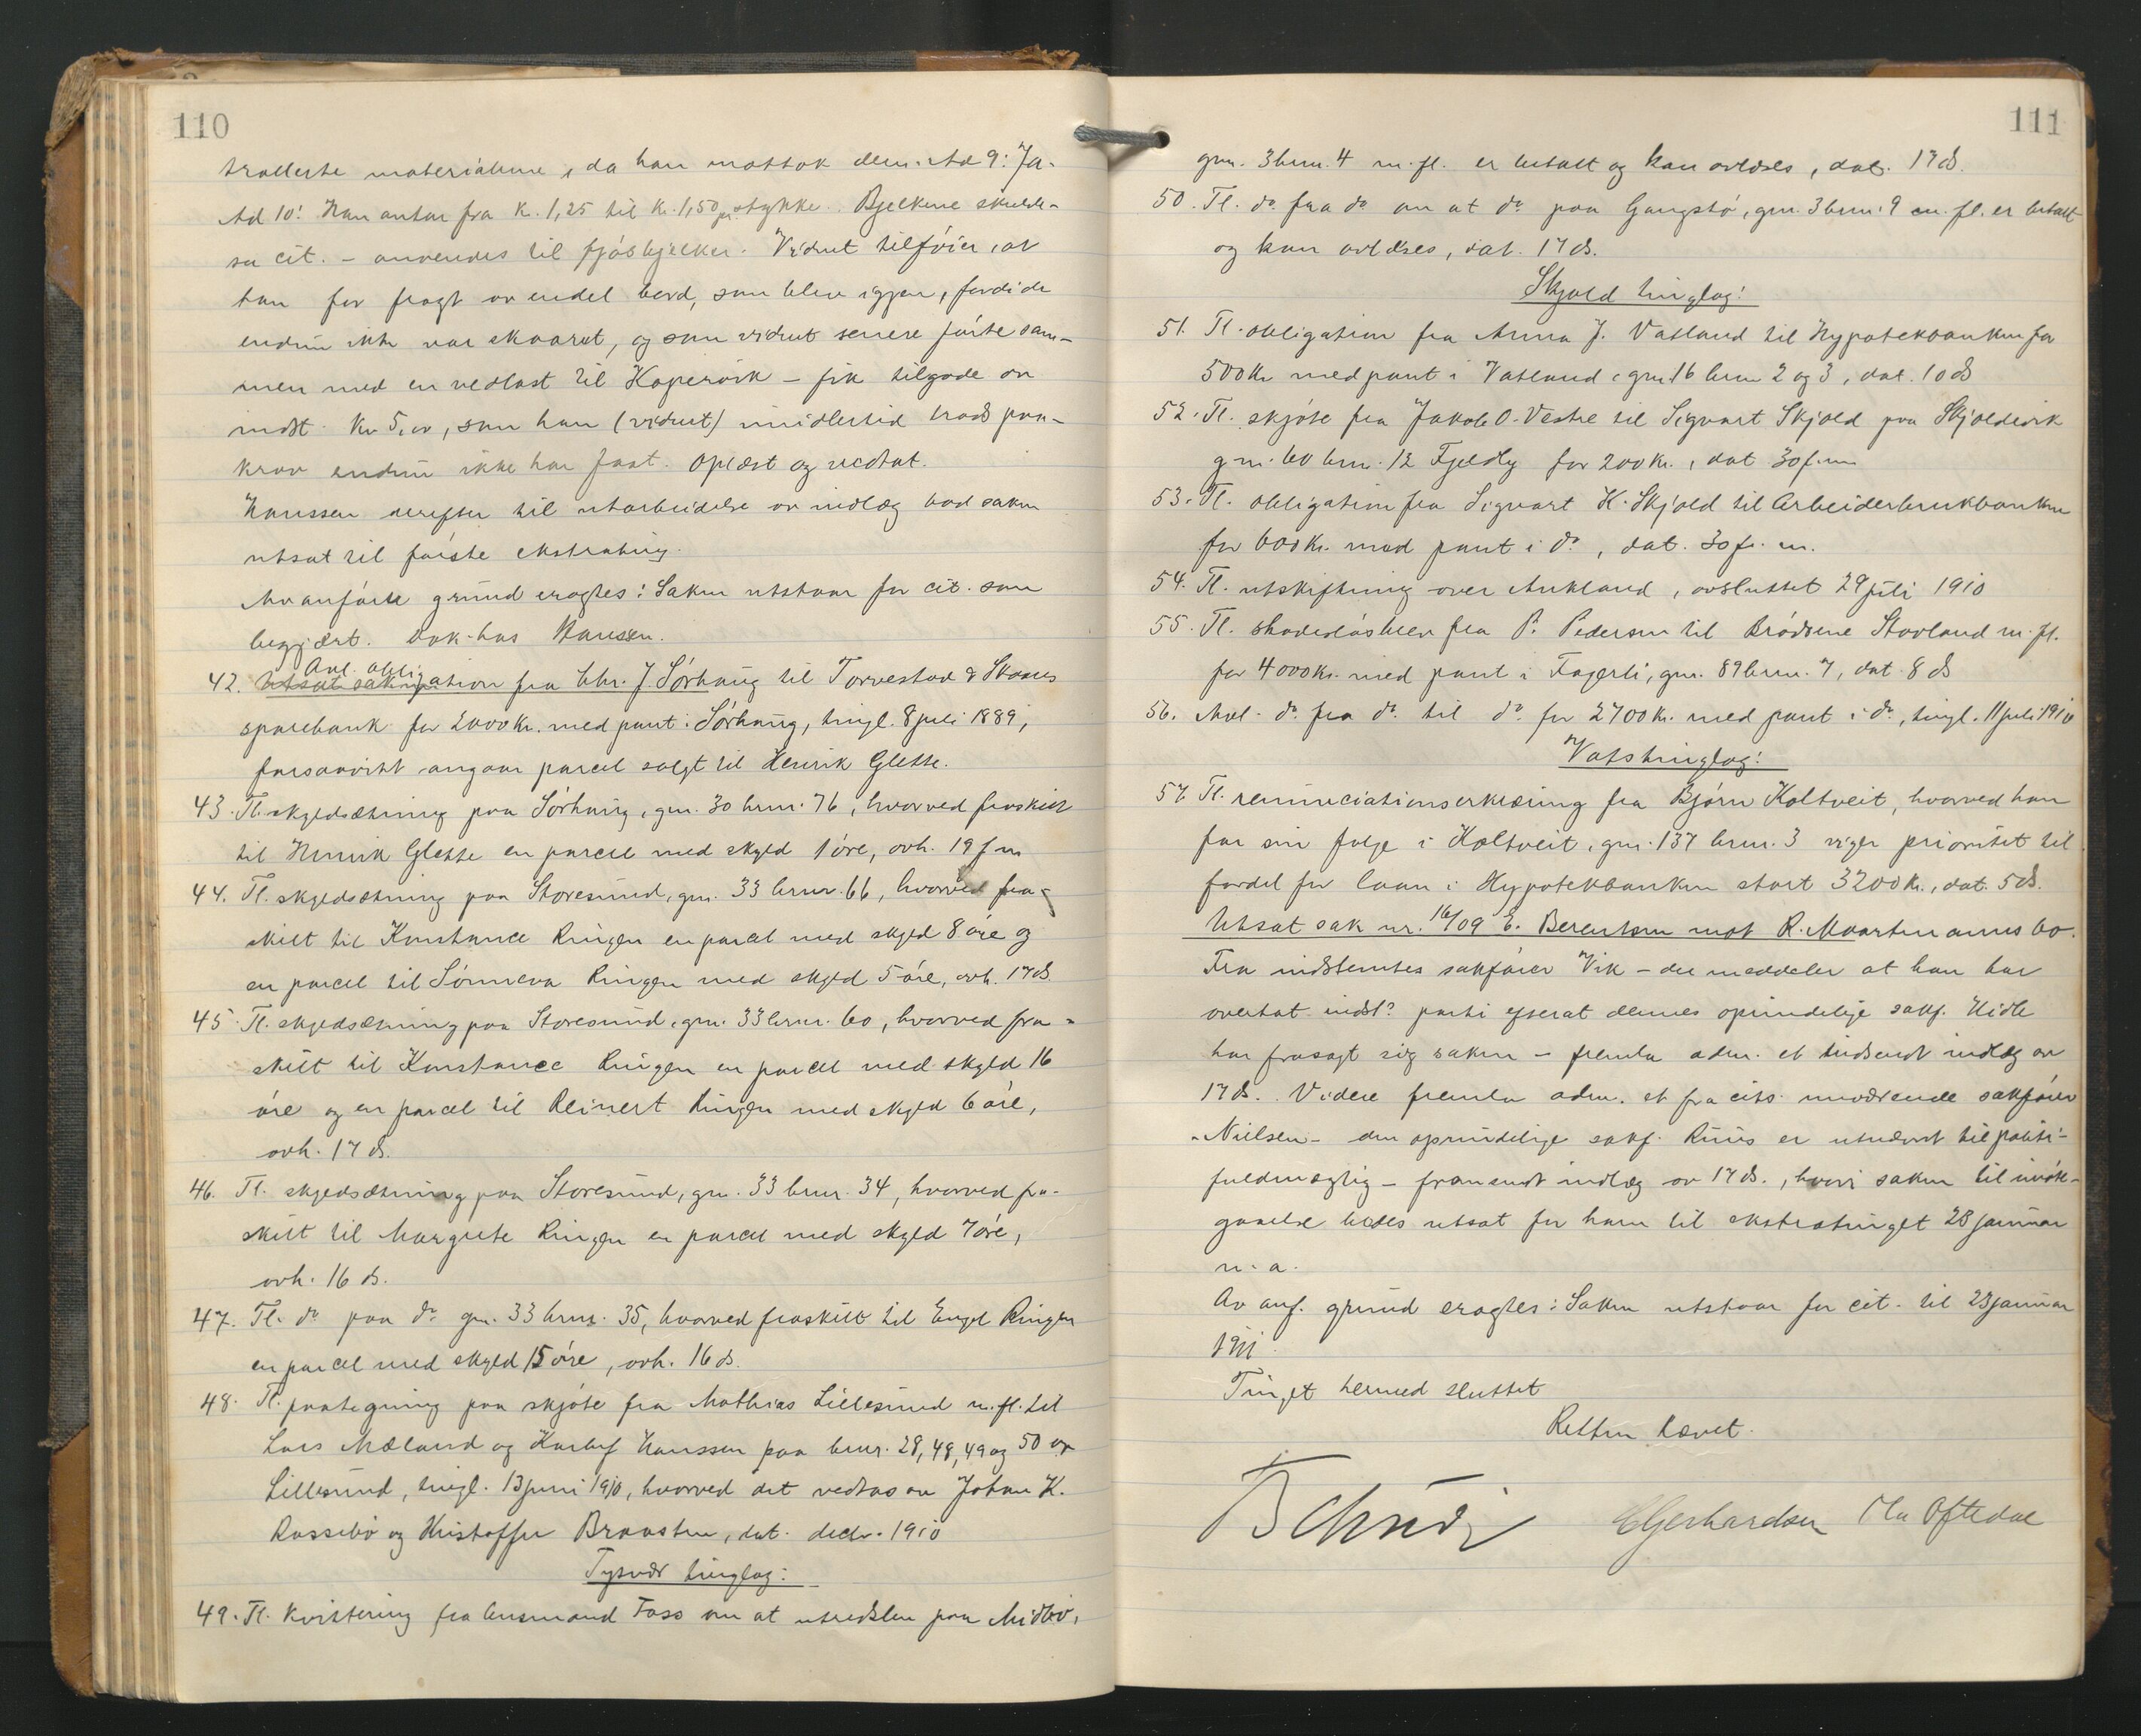 110
trollerte materialene, da han mottok dem. Ad 9: Ja.
Ad 10: Han antar fra kr. 1,25 til kr. 1,50 pr stykke. Bjelkene skulde -
sa cit. - anvendes til fjösbjelker. Vidnet tilföier, at
han for fragt av endel bord, som blev igjen, fordi de
endnu ikke var skaaret, og som vidnet senere förte sam-
men med en vedlast til Kopervik - fik tilgode av
indst. kr 5,00, som han (vidnet) imidlertid trods paa-
krav endnu ikke har faat. Oplæst og vedtat.
Hanssen derefter til utarbeidelse av indlæg bad saken
utsat til förste ekstrating.
Av anförte grund eragtes: Saken utstaar for cit. som
begjært. Dok. hos Hanssen.
42. Avl. obligation fra Chr. J. Sörhaug til Torvestad & Skaares
sparebank for 2000 kr. med pant i Sörhaug, tingl. 8 juli 1889,
forsaavidt angaar parcel solgt til Henrik Glette.
43. Tl. skyldsætning paa Sörhaug, gnr. 30 brnr. 76, hvorved fraskilt
til Henrik Glette en parcel med skyld 1 öre, avh. 19 f m
44. Tl. skyldsætning paa Storesund, gnr. 33 brnr. 66, hvorved fra-
skilt til Konstance Ringen en parcel med skyld 8 öre og
en parcel til Sönneva Ringen med skyld 5 öre, avh. 17 ds.
45. Tl. skyldsætning paa Storesund, gnr. 33 brnr. 60, hvorved fra-
skilt til Konstance Ringen en parcel med skyld 16
öre og en parcel til Reinert Ringen med skyld 6 öre,
avh. 17 ds.
46. Tl. skyldsætning paa Storesund, gnr. 33 brnr. 34, hvorved fra-
skilt til Margrete Ringen en parcel med skyld 7 öre,
avh. 16 ds.
47. Tl. do paa do gnr. 33 brnr. 35, hvorved fraskilt til Engel Ringen
en parcel med skyld 15 öre, avh. 16 ds.
48. Tl. paategning paa skjöte fra Mathias Lillesund m. fl. til
Lars Mæland og Hanssen paa brnr. 28, 48, 49 og 50 av
Lillesund, tingl. 13 juni 1910, hvorved det vedtas av Johan K.
Rossebö og Kristoffer Braasten, dat. decbr. 1910
Tysvær tinglag:
49. Tl. kvittering fra lensmand Foss om at utredslen paa Midbö,
111
gnr. 3 brnr. 4 m. fl. er betalt og kan avlæses, dat. 17 ds.
50. Tl. do fra do om at do paa Gangstö, gnr. 3 brnr. 9 m. fl. er betalt
og kan avlæses, dat. 17 ds.
Skjold tinglag:
51. Tl. obligation fra Anna J. Vatland til Hypotekbanken for
500 kr med pant i Vatland, gnr. 16 brnr 2 og 3, dat. 10 ds
52. Tl. skjöte fra Jakob O. Vestre til Sigvart Skjold paa Skjoldevik
gnr. 60 brnr. 12 Fjeldly for 200 kr., dat 30 f. m
53. Tl. obligation fra Sigvart H. Skjold til Arbeiderbrukbanken
for 600 kr. med pant i do, dat. 30 f. m.
54. Tl. utskiftning over Aukland, avsluttet 29 juli 1910
55. Tl. skadeslösbrev fra P. Pedersen til Brödrene Stavland m. fl.
for 4000 kr. med pant i Fagerli, gnr. 89 brnr. 7, dat. 8 ds
56. Avl. do fra do til do for 2700 kr. med pant i do, tingl. 11 juli 1910
Vats tinglag:
57. Tl. renunciationserklæring fra Björn Holtveit, hvorved han
for sin folge i Holtveit, gnr. 137 brnr. 3 viger prioritet til
fordel for laan i Hypotekbanken stort 3200 kr., dat. 5 ds.
Utsat sak nr. 16/09 E. Berentsen mot R. Maartmanns bo.
Fra indstevntes sakförer Vik - der meddeler at han har
overtat indst? parti efterat dennes oprindelige sakf. Hidle
har frasagt sig saken - fremla adm. et indsendt indlæg av
17 ds. Videre fremla adm. et fra cits. nuværende sakförer
Nielsen - den oprindelige sakf. Riis er utnævnt til politi-
fuldmægtig - fremsendt indlæg av 17 ds., hvori saken til imöte-
gaaelse bedes utsat for ham til ekstratinget 28 januar
n. a.
Av anf. grund eragtes: Saken utstaar for cit. til 28 januar
1911.
Tinget hermed sluttet
Retten hævet.
EGjerhardsen Ola Oftedal